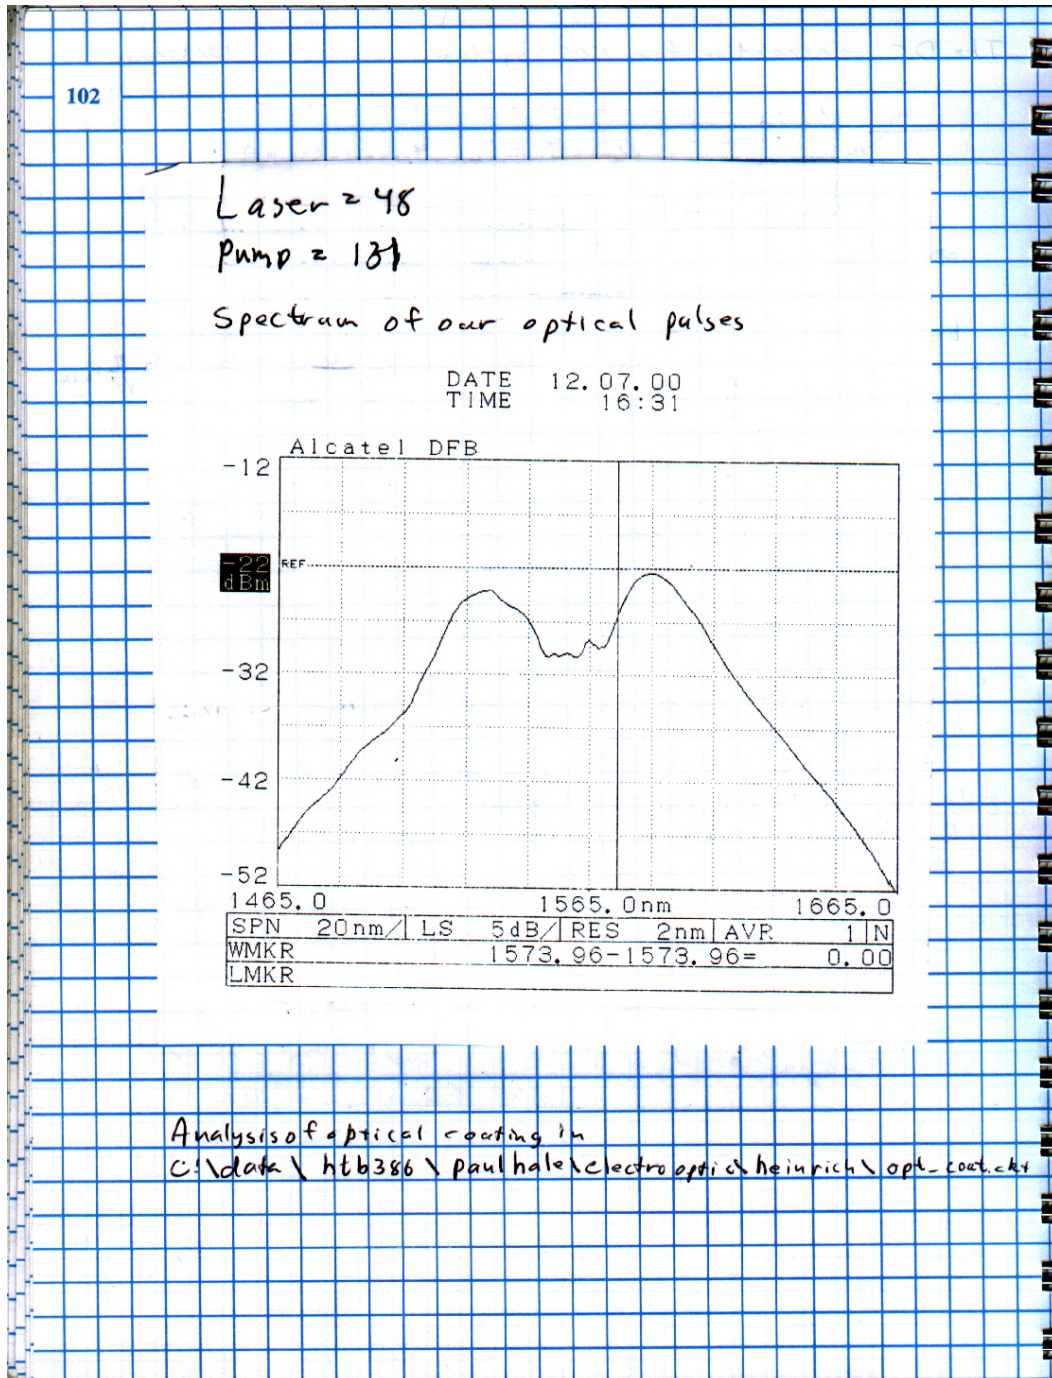 102
Laser = 48
Pump = 131
Spectrum of our optical pulses
DATE 12.07.00
TIME 16:31
Alcatel DFB
-12
-22 REF
dBm
-32
-42
-52
1465.0 1565.0nm 1665.0
SPN 20nm/ LS 5dB/ RES 2nm AVR 1 N
WMKR 1573.96-1573.96= 0.00
LMKR
Analysis of optical coating in
C:\data\ htb386 \ paulhale\electrooptic\heinrich\ opt_coat.ckt